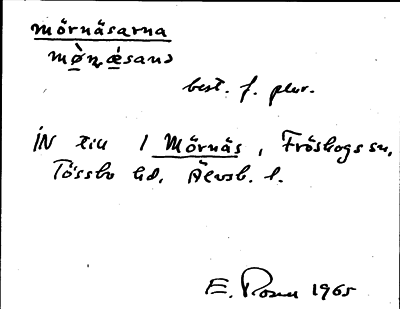 Mörnäsarna
best. f. plur.
IN till 1 Mörnäs, Fröskogs sn,
Tössbo hd, Älvsb. l.
E. Rosén 1965